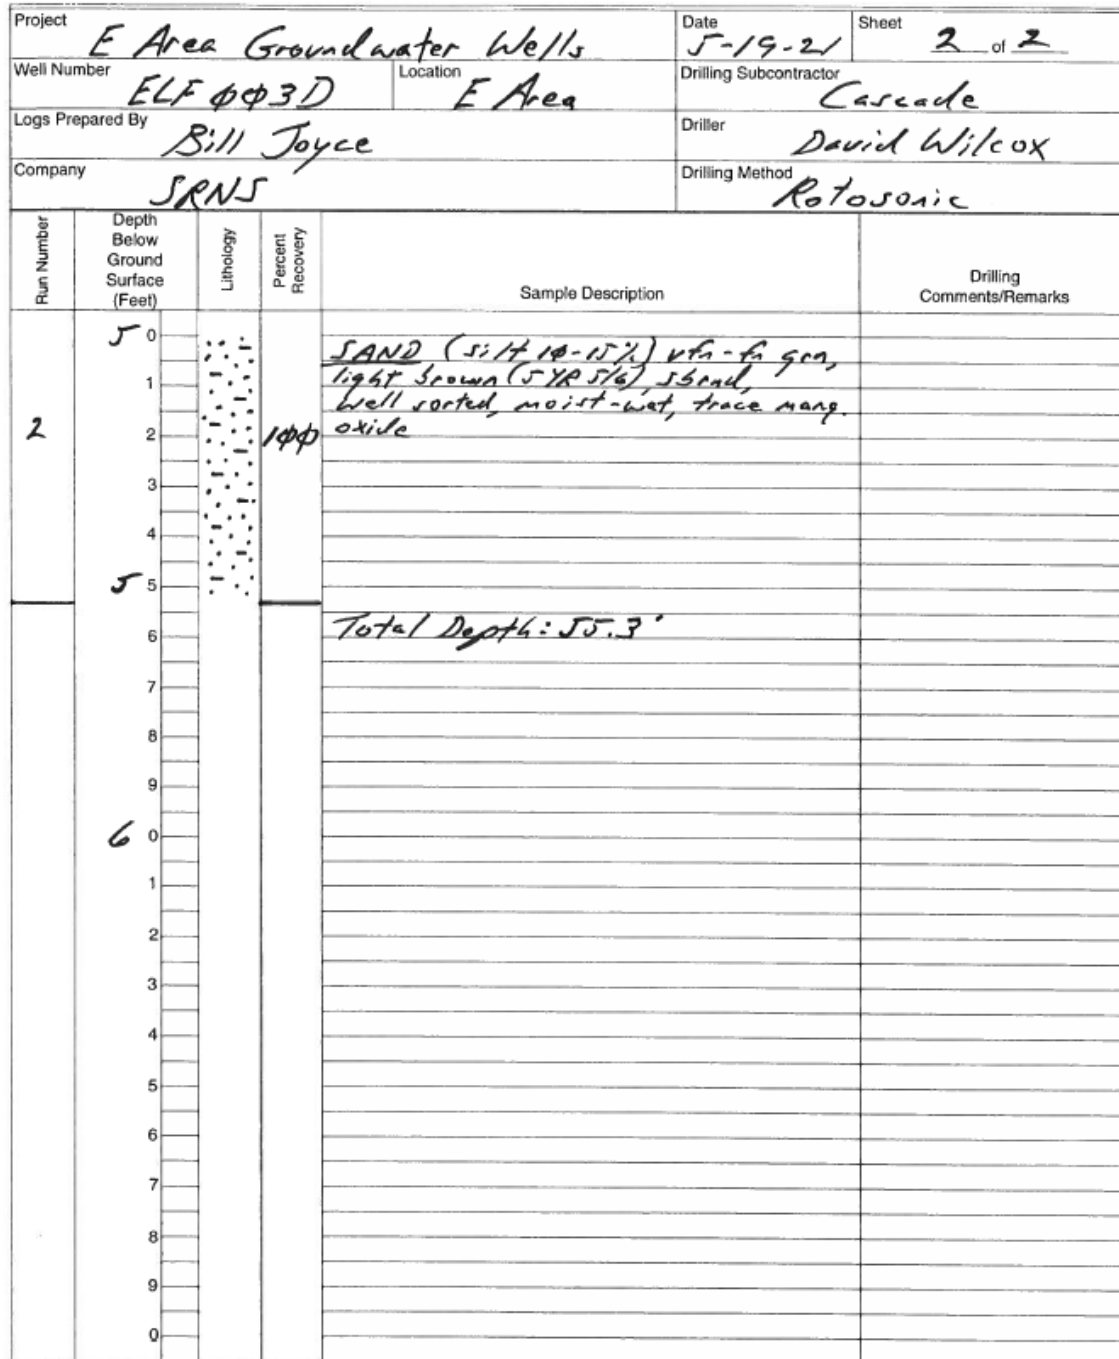 Project E Area Groundwater Wells
Date 5-19-21
Sheet 2 of 2
Well Number ELF ØØ3D
Location E Area
Drilling Subcontractor Cascade
Logs Prepared By Bill Joyce
Driller David Wilcox
Company SRNS
Drilling Method Rotosonic
Run Number
Depth Below Ground Surface (Feet)
Lithology
Percent Recovery
Sample Description
Drilling Comments/Remarks
5 0
SAND (silt 1Ø-15%) vfn-fn grn,
1 light brown (5 YR 5/6), sbrnd,
well sorted, moist-wet, trace mang.
2 2 1ØØ oxide
3
4
5 5
6 Total Depth: 55.3'
7
8
9
6 0
1
2
3
4
5
6
7
8
9
0